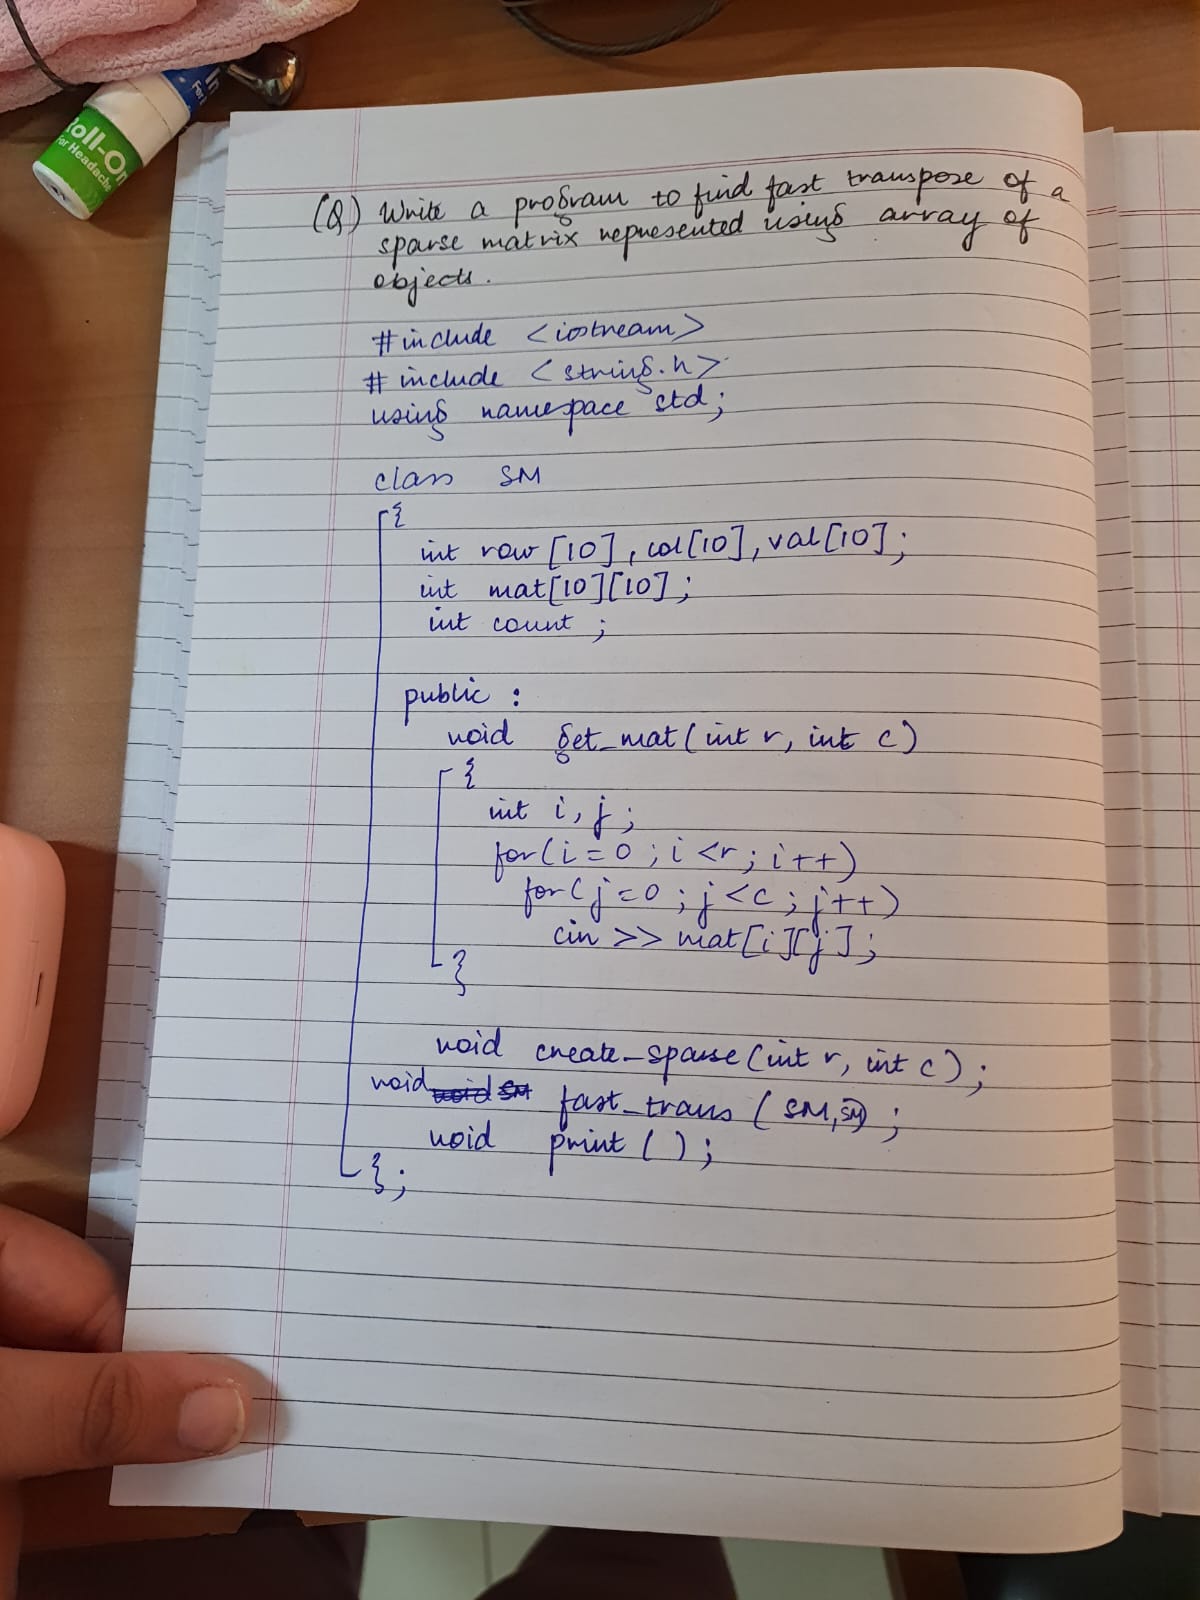 In
For
Roll-On
For Headache
(Q) Write a program to find fast transpose of a
sparse matrix represented using array of
objects.
#include <iostream>
#include <string.h>
using namespace std;
class SM
{
int row[10], col[10], val[10];
int mat[10][10];
int count ;
public :
void get_mat(int r, int c)
{
int i, j ;
for(i=0 ; i<r; i++)
for(j=0 ; j<c ; j++)
cin >> mat[i][j] ;
}
void create_sparse(int r, int c) ;
void void SM fast_trans (SM, SM) ;
void print ( ) ;
} ;